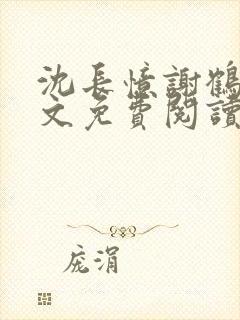 沈長憶謝鶴
文免費閱讀
庞涓